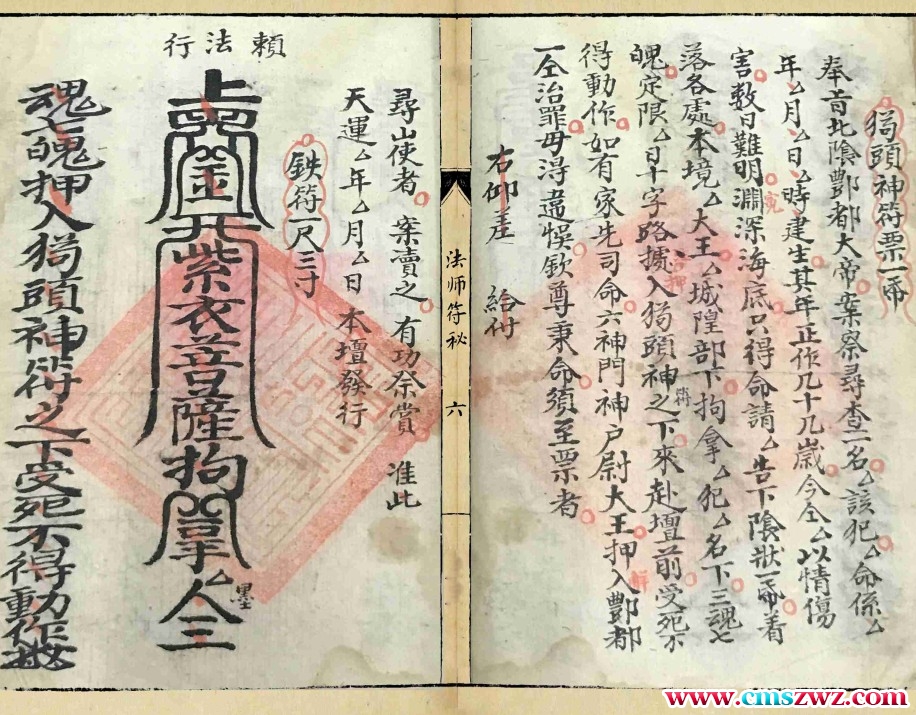 猖頭神符票一帋
奉旨北陰酆都大帝案祭尋查一名△該犯△命係△
年△月△日△時建生其年正作几十几歲今仝△以情傷
害数日難明淵深海底只得命請△告下陰狀一帋着
落各處本境△大王△城隍部卞拘拿△犯△名下三魂七
魄定限△日十字路攎入猖頭神之下來赴壇前受死不
符
得動作如有家先司命六神門神户尉大王押入酆都
一仝治罪毋淂違悞欽尊秉命須至票者
右仰差 給付
法师符秘
六
尋山使者 案賣之 有功祭賞 准此
天運△年△月△日 本壇發行
鉄符一尺三寸
賴法行
紫衣菩薩拘
人三
墨
魂七魄押入猖頭神符之下受死不得動作
www.cmszwz.com